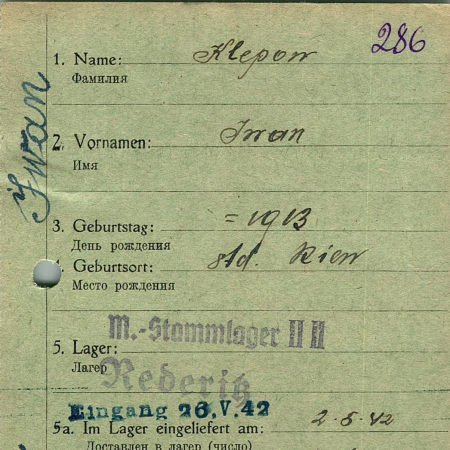 286
1. Name: Klepow
Фамилия
Iwan
2. Vornamen: Iwan
Имя
3. Geburtstag: = 1913
День рождения
4. Geburtsort: std. Kiew
Место рождения
M.-Stammlager II H
5. Lager:
Лагерь
Rederitz
Eingang 26.V.42
5a. Im Lager eingeliefert am: 2.5.42
Доставлен в лагерь (число)